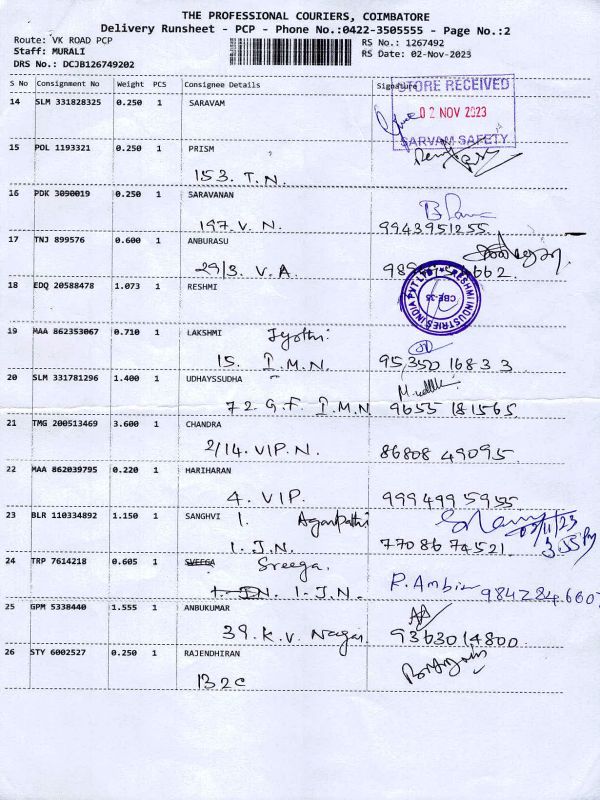 THE PROFESSIONAL COURIERS, COIMBATORE
Delivery Runsheet - PCP - Phone No.:0422-3505555 - Page No.:2
Route: VK ROAD PCP RS No.: 1267492
Staff: MURALI RS Date: 02-Nov-2023
DRS No.: DCJB126749202
S No Consignment No Weight PCS Consignee Details Signature
STORE RECEIVED
14 SLM 331828325 0.250 1 SARAVAM
02 NOV 2023
SARVAM SAFETY
15 POL 1193321 0.250 1 PRISM
153. T.N.
16 PDK 3090019 0.250 1 SARAVANAN
197. V.N. 9943951255
17 TNJ 899576 0.600 1 ANBURASU
29/3. V.A
18 EDQ 20588478 1.073 1 RESHMI
RESHMI INDUSTRIES INDIA PVT LTD
CBE-35
19 MAA 862353067 0.710 1 LAKSHMI Jyothi
15. I.M.N. 95,350 16833
20 SLM 331781296 1.400 1 UDHAYSSUDHA
72. G.F. I.M.N 9655 181565
21 TMG 200513469 3.600 1 CHANDRA
2/14. VIP. N. 86808 49095
22 MAA 862039795 0.220 1 HARIHARAN
4. VIP. 999499 5955
23 BLR 110334892 1.150 1 SANGHVI 1. Agarpathi
02/11/23
1. J.N. 7708674521 3.55 Pm
24 TRP 7614218 0.605 1 SVEEGA Sreega.
1. J.N. 1. J.N. 
25 GPM 5338440 1.555 1 ANBUKUMAR
39. K.V. Nagar. 9363014800
26 STY 6002527 0.250 1 RAJENDHIRAN
132C